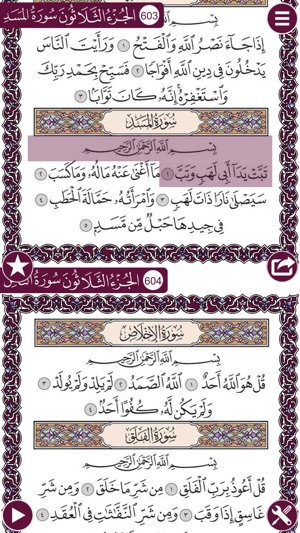 الجزء الثلاثون سورة المسد
603
بِسْمِ اللَّهِ الرَّحْمَٰنِ الرَّحِيمِ
إِذَا جَاءَ نَصْرُ اللَّهِ وَالْفَتْحُ ١ وَرَأَيْتَ النَّاسَ
يَدْخُلُونَ فِي دِينِ اللَّهِ أَفْوَاجًا ٢ فَسَبِّحْ بِحَمْدِ رَبِّكَ
وَاسْتَغْفِرْهُ إِنَّهُ كَانَ تَوَّابًا ٣
سُورَةُ المَسَدِ
بِسْمِ اللَّهِ الرَّحْمَٰنِ الرَّحِيمِ
تَبَّتْ يَدَا أَبِي لَهَبٍ وَتَبَّ ١ مَا أَغْنَىٰ عَنْهُ مَالُهُ وَمَا كَسَبَ ٢
سَيَصْلَىٰ نَارًا ذَاتَ لَهَبٍ ٣ وَامْرَأَتُهُ حَمَّالَةَ الْحَطَبِ ٤
فِي جِيدِهَا حَبْلٌ مِّن مَّسَدٍ ٥
الجزء الثلاثون سورة
604
سُورَةُ الإِخْلَاصِ
بِسْمِ اللَّهِ الرَّحْمَٰنِ الرَّحِيمِ
قُلْ هُوَ اللَّهُ أَحَدٌ ١ اللَّهُ الصَّمَدُ ٢ لَمْ يَلِدْ وَلَمْ يُولَدْ ٣
وَلَمْ يَكُن لَّهُ كُفُوًا أَحَدٌ ٤
سُورَةُ الفَلَقِ
بِسْمِ اللَّهِ الرَّحْمَٰنِ الرَّحِيمِ
قُلْ أَعُوذُ بِرَبِّ الْفَلَقِ ١ مِن شَرِّ مَا خَلَقَ ٢ وَمِن شَرِّ
غَاسِقٍ إِذَا وَقَبَ ٣ وَمِن شَرِّ النَّفَّاثَاتِ فِي الْعُقَدِ ٤